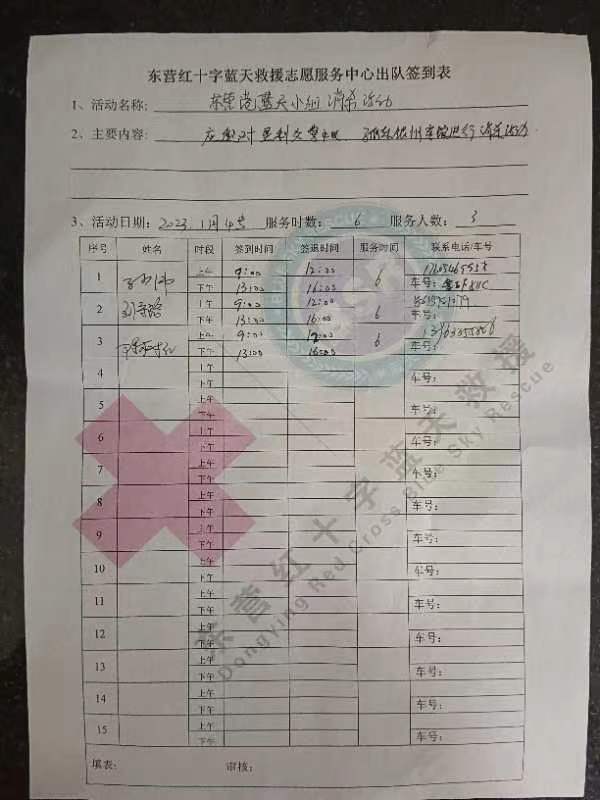 东营红十字蓝天救援志愿服务中心出队签到表
1、活动名称: 蓝天小组消杀活动
2、主要内容:
3、活动日期: 2023.1月4号 服务时数: 6 服务人数: 3
序号 姓名 时段 签到时间 签退时间 服务时间 联系电话/车号
1 上午 9:00 12:00 6
下午 13:00 16:00 车号:
2 上午 9:00 12:00 6
下午 13:00 16:00 车号:
3 上午 9:00 12:00 6
下午 13:00 16:00 车号:
4 上午
下午 车号:
5 上午
下午 车号:
6 上午
下午 车号:
7 上午
下午 车号:
8 上午
下午 车号:
9 上午
下午 车号:
10 上午
下午 车号:
11 上午
下午 车号:
12 上午
下午 车号:
13 上午
下午 车号:
14 上午
下午 车号:
15 上午
下午 车号:
填表: 审核:
东营红十字蓝天救援
Dongying Red Cross Blue Sky Rescue